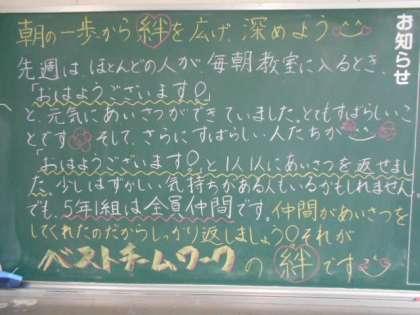 お知らせ
朝の一歩から絆を広げ、深めよう
先週は、ほとんどの人が、毎朝教室に入るとき、
「おはようございます!」
と、元気にあいさつができていました。とてもすばらしいこ
とです。そして、さらにすばらしい人たちが
「おはようございます!」と1人1人にあいさつを返せまし
た。少しはずかしい気持ちがある人もいるかもしれません。
でも、5年1組は全員仲間です。仲間があいさつを
してくれたのだからしっかり返しましょう!それが
ベストチームワークの絆です